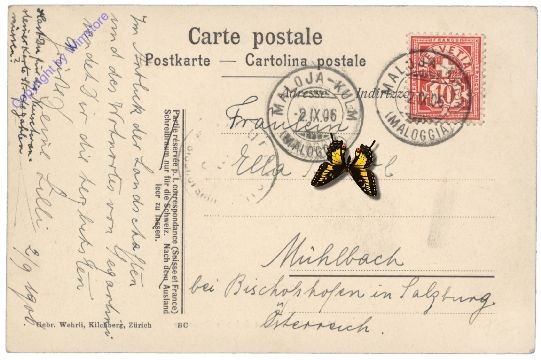 Carte postale
Postkarte — Cartolina postale
Adresse Indirizzo
MALOJA-KULM
2.IX.06
(MALOGGIA)
HELVETIA
10
(MALOGGIA)
Fräulein
Ella
Mühlbach
bei Bischofshofen in Salzburg
Österreich.
Partie réservée p. l. correspondance (Suisse et France)
Schreibraum nur für die Schweiz. Nach dem Ausland
leer zu lassen.
Im Anblick der Landschaften
und des Wohnortes von Segantini
sendet Dir die herzlichsten
Grüße
Deine Lilli
2/9 1906.
Copyright by wmstore
Gebr. Wehrli, Kilchberg, Zürich BC